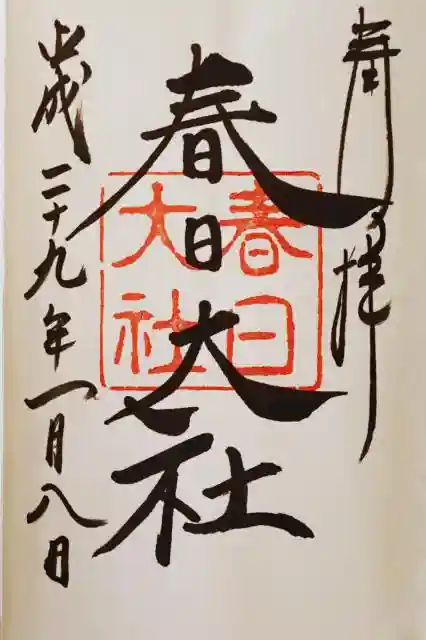 奉拝
春日大社
春日大社
平成二十九年一月八日